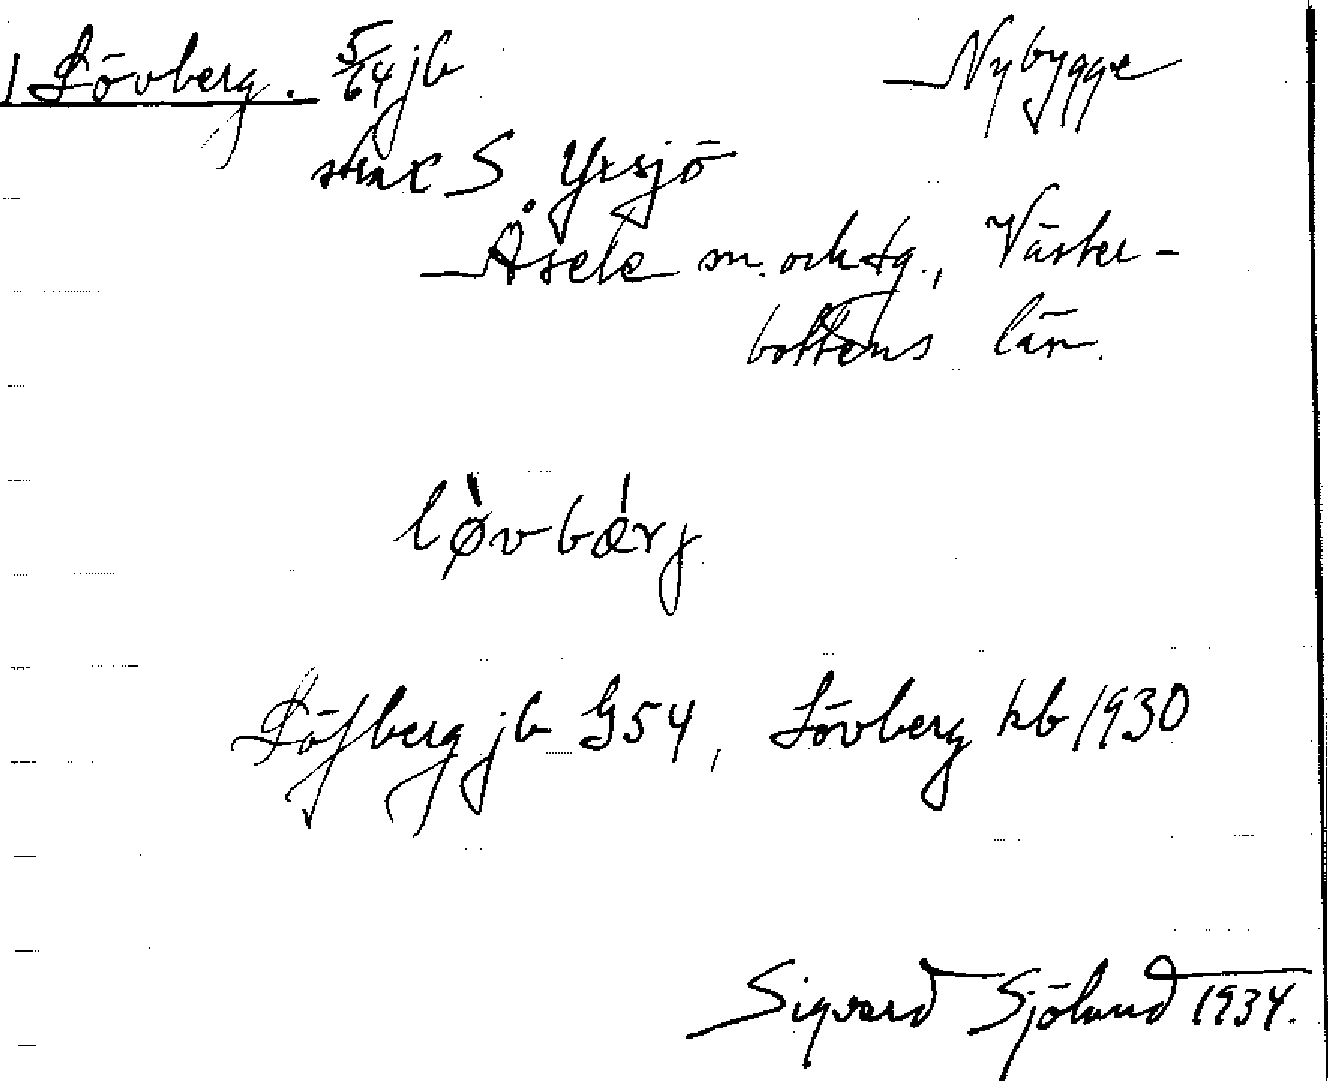 1 Lövberg. 5/64 jb Nybygge
strax S Yxsjö
Åsele sn. och tg., Väster-
bottens län.
lø̀vbǽrj
Löfberg jb G54, Lövberg kb 1930
Sigvard Sjölund 1934.